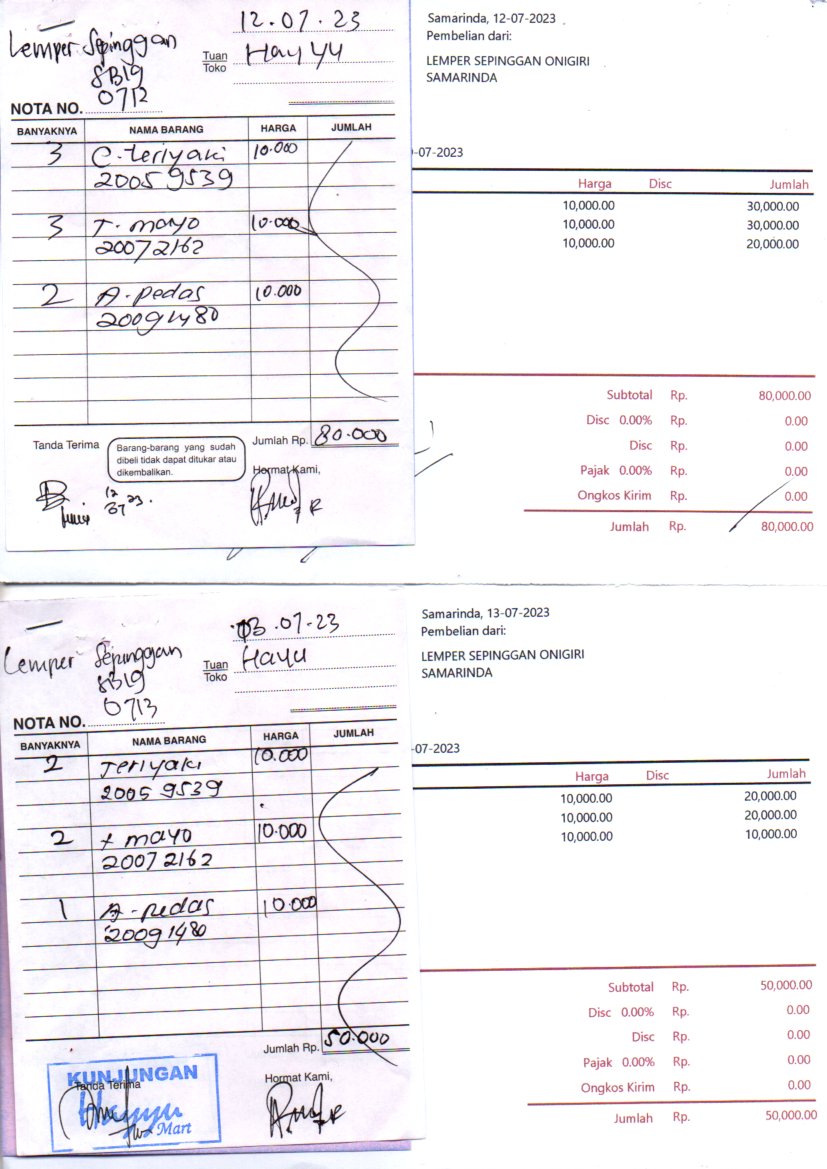 12.07.23
Lemper Sepinggan
SB19
0712
Tuan
Toko
Hayyu
NOTA NO.
BANYAKNYA NAMA BARANG HARGA JUMLAH
3 C. teriyaki 10.000
20059539
3 T. mayo 10.000
20072162
2 A. pedas 10.000
20091480
Tanda Terima
Barang-barang yang sudah
dibeli tidak dapat ditukar atau
dikembalikan.
Jumlah Rp. 80.000
Hormat Kami,
Samarinda, 12-07-2023
Pembelian dari:
LEMPER SEPINGGAN ONIGIRI
SAMARINDA
-07-2023
Harga Disc Jumlah
10,000.00 30,000.00
10,000.00 30,000.00
10,000.00 20,000.00
Subtotal Rp. 80,000.00
Disc 0.00% Rp. 0.00
Disc Rp. 0.00
Pajak 0.00% Rp. 0.00
Ongkos Kirim Rp. 0.00
Jumlah Rp. 80,000.00
13.07.23
Lemper Sepinggan
SB19
0713
Tuan
Toko
Hayu
NOTA NO.
BANYAKNYA NAMA BARANG HARGA JUMLAH
2 Teriyaki 10.000
20059539
2 t mayo 10.000
20072162
1 A-pedas 10.000
20091480
Jumlah Rp. 50.000
KUNJUNGAN
Tanda Terima
Hayyu
Mart
Hormat Kami,
Samarinda, 13-07-2023
Pembelian dari:
LEMPER SEPINGGAN ONIGIRI
SAMARINDA
-07-2023
Harga Disc Jumlah
10,000.00 20,000.00
10,000.00 20,000.00
10,000.00 10,000.00
Subtotal Rp. 50,000.00
Disc 0.00% Rp. 0.00
Disc Rp. 0.00
Pajak 0.00% Rp. 0.00
Ongkos Kirim Rp. 0.00
Jumlah Rp. 50,000.00